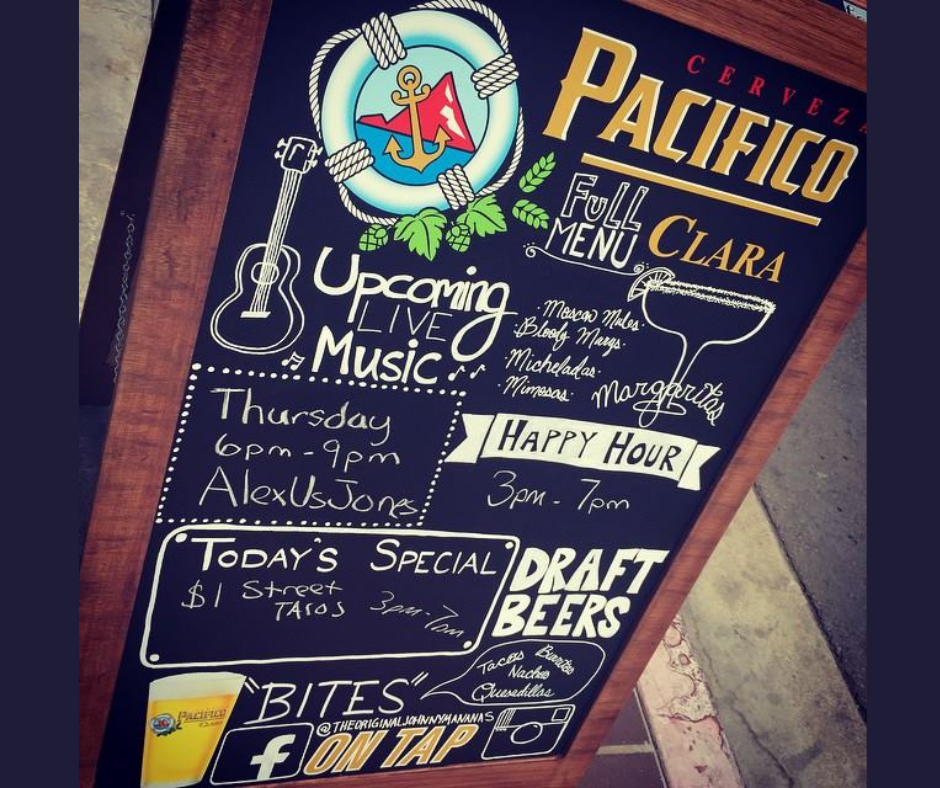 CERVEZA
PACIFICO
CLARA
FULL
MENU
Upcoming
LIVE
Music
Moscow Mules
Bloody Marys
Micheladas
Mimosas
Margaritas
Thursday
6pm - 9pm
AlexUsJones
HAPPY HOUR
3pm - 7pm
TODAY'S SPECIAL
$1 Street
TACOS 3pm-7pm
DRAFT
BEERS
Tacos Burritos
Nachos
Quesadillas
"BITES"
@THEORIGINALJOHNNYMANANAS
ON TAP
PACIFICO
CLARA
f